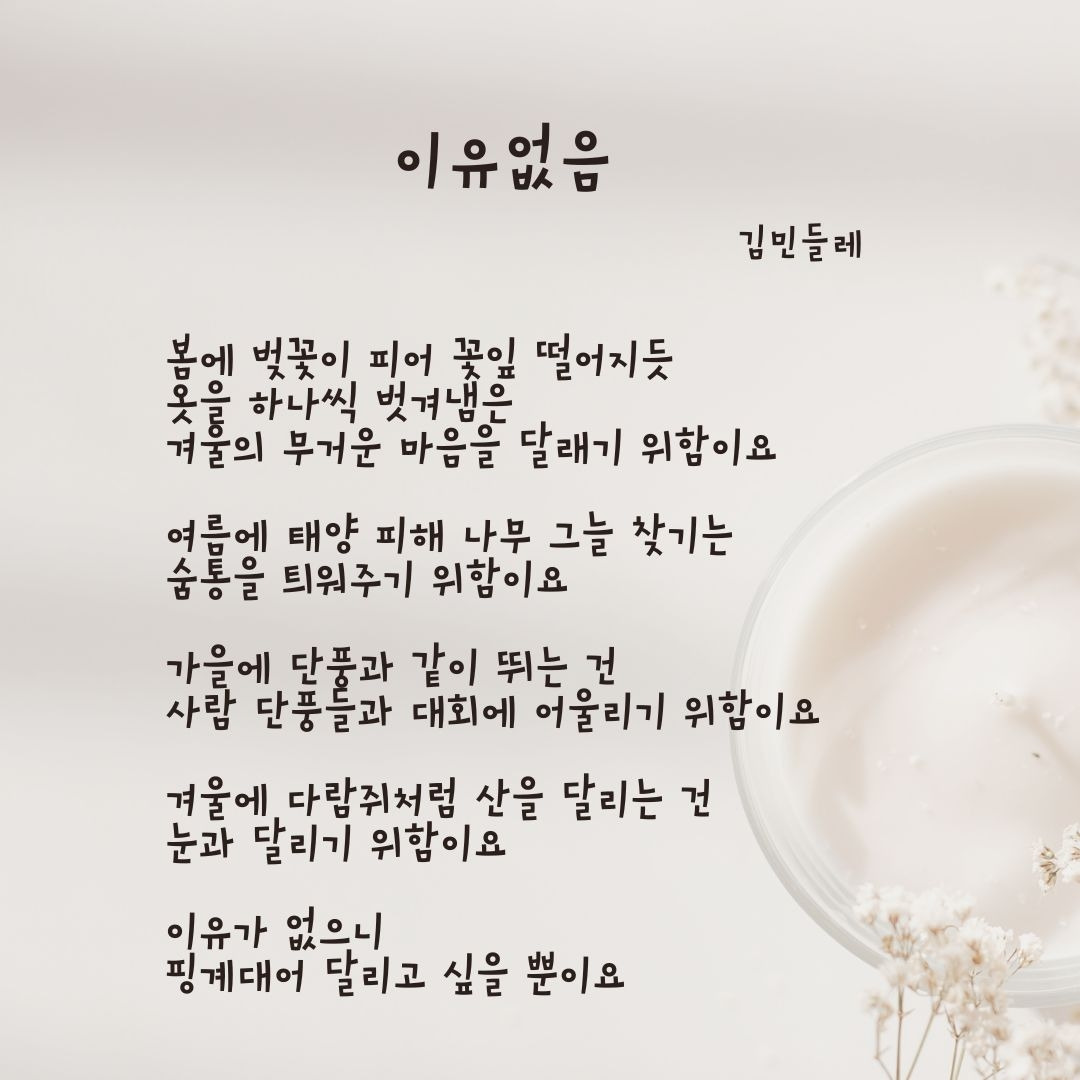 이유없음
김민들레
봄에 벚꽃이 피어 꽃잎 떨어지듯
옷을 하나씩 벗겨냄은
겨울의 무거운 마음을 달래기 위함이요
여름에 태양 피해 나무 그늘 찾기는
숨통을 틔워주기 위함이요
가을에 단풍과 같이 뛰는 건
사람 단풍들과 대회에 어울리기 위함이요
겨울에 다람쥐처럼 산을 달리는 건
눈과 달리기 위함이요
이유가 없으니
핑계대어 달리고 싶을 뿐이요